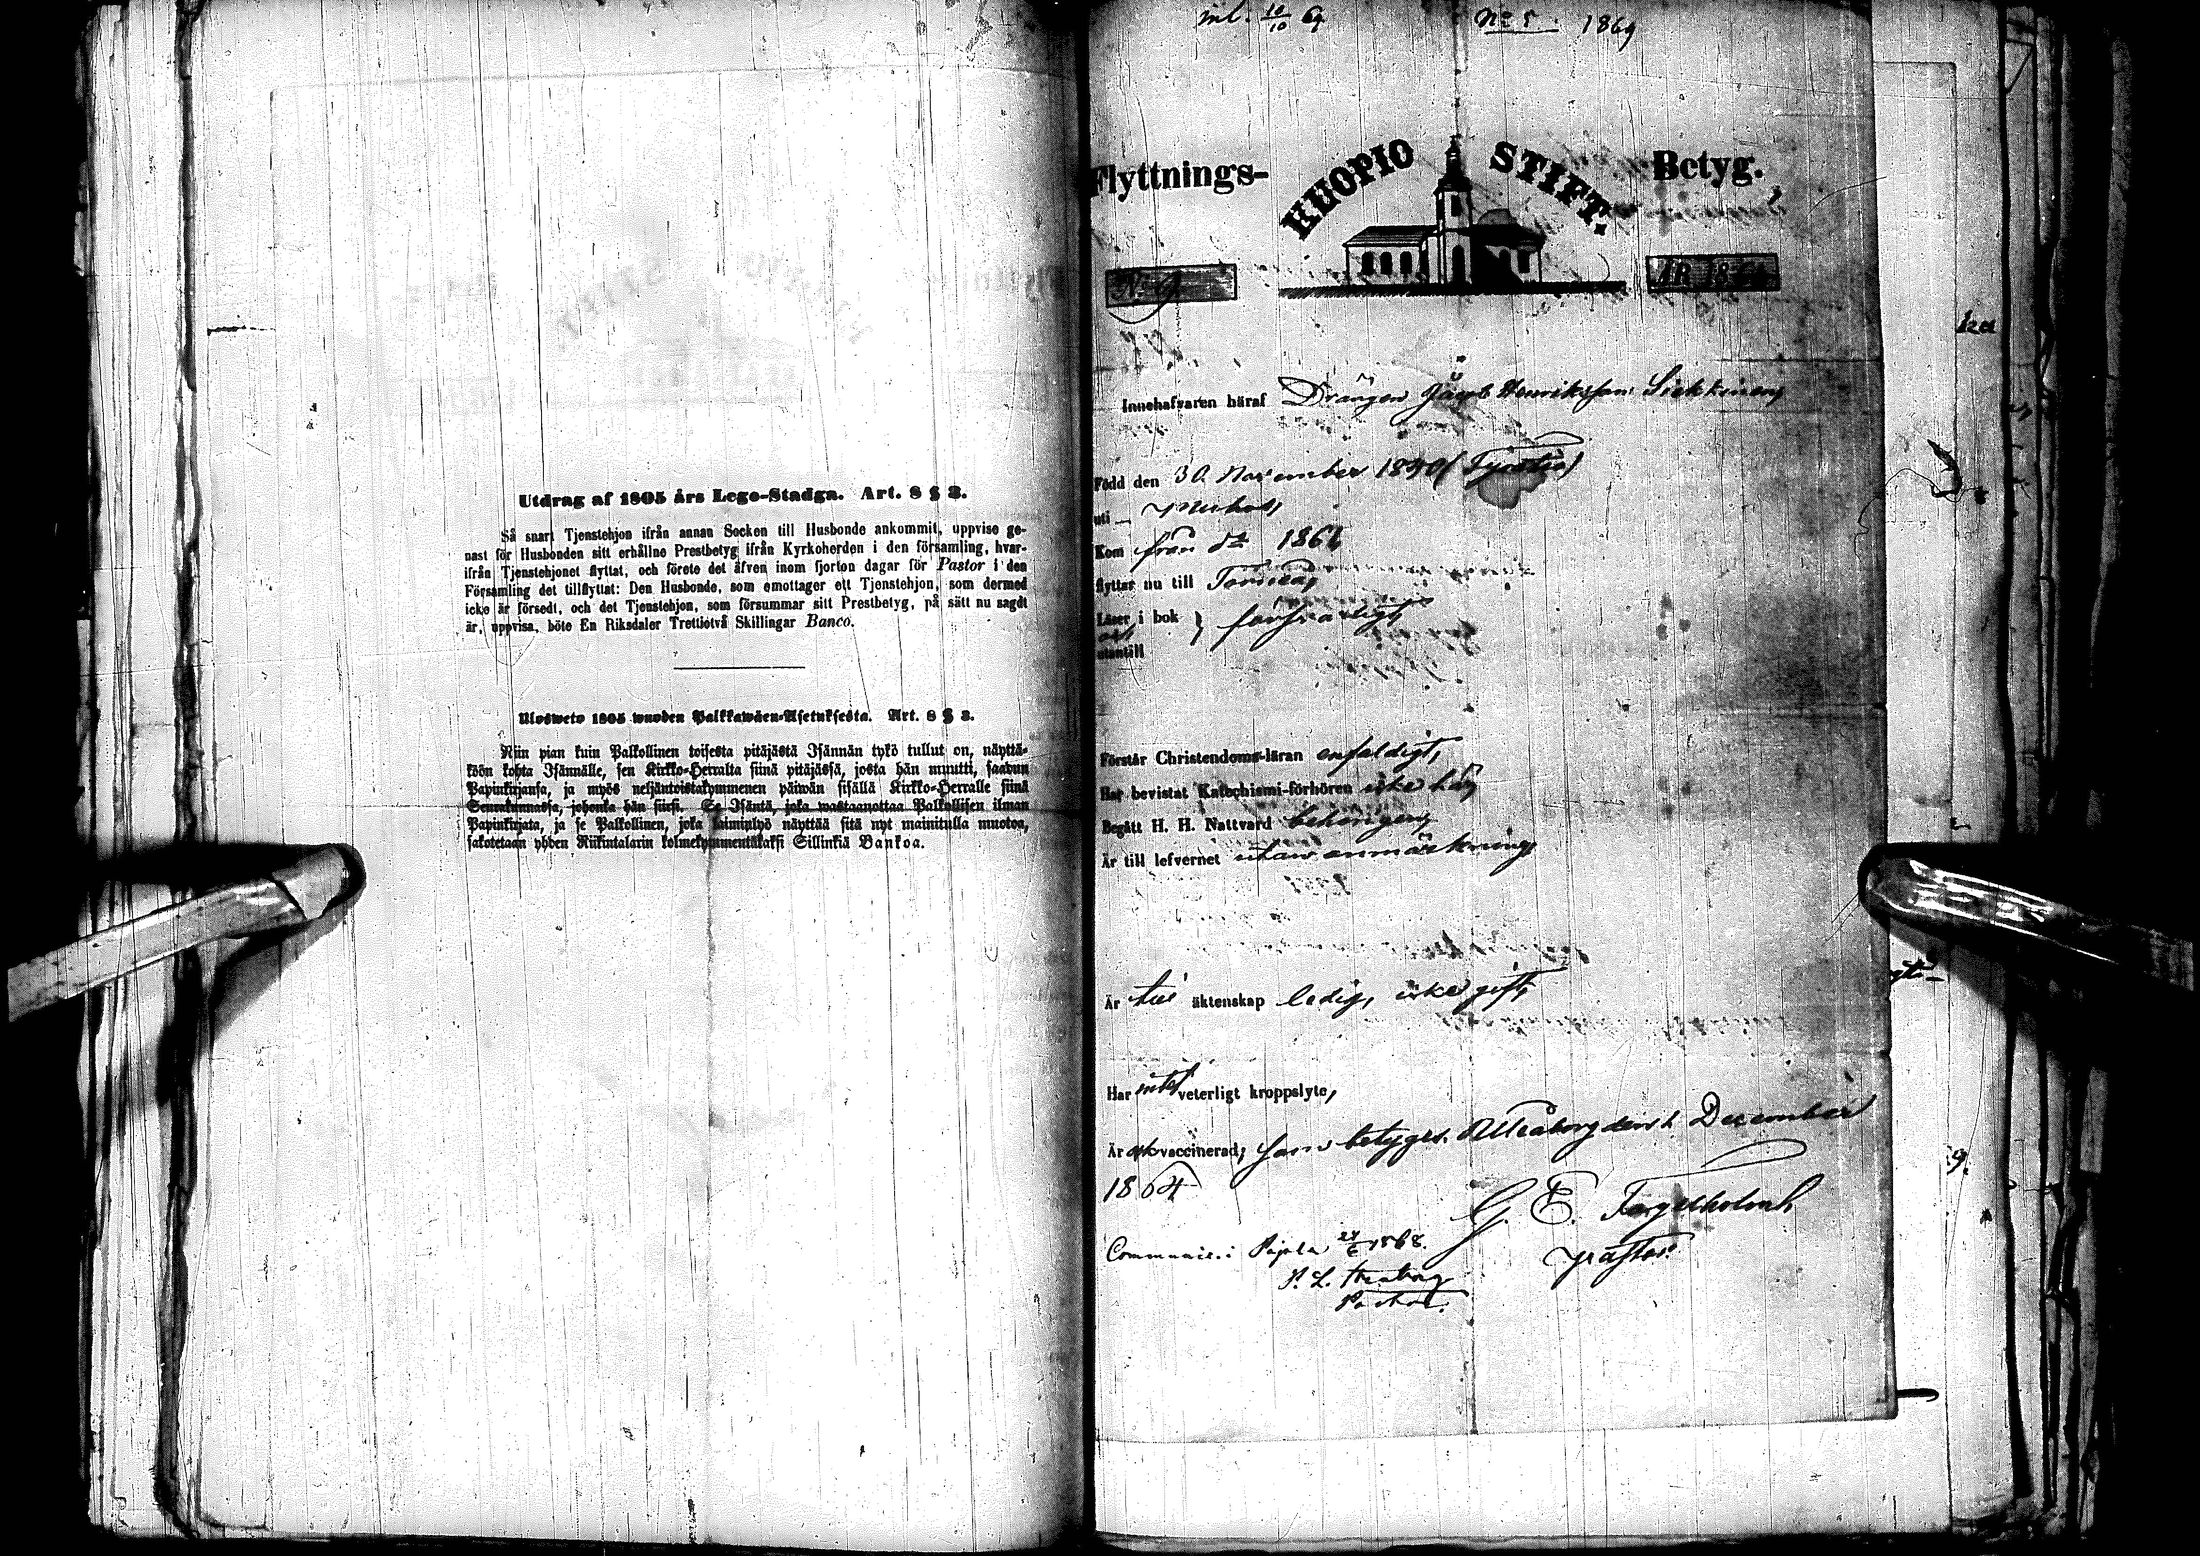 Utdrag af 1805 års Lego-Stadga. Art. 8 § 3.
Så snart Tjenstehjon ifrån annan Socken till Husbonde ankommit, uppvise ge-
nast för Husbonden sitt erhållne Prestbetyg ifrån Kyrkoherden i den församling, hvar-
ifrån Tjenstehjonet flyttat, och förete det äfven inom fjorton dagar för Pastor i den
Församling det tillflyttat: Den Husbonde, som emottager ett Tjenstehjon, som dermed
icke är försedt, och det Tjenstehjon, som försummar sitt Prestbetyg, på sätt nu sagdt
är, uppvisa, böte En Riksdaler Trettiotvå Skillingar Banco.
Ulosweto 1805 wuoden Palkkawäen-Asetuksesta. Art. 8 § 3.
Niin pian kuin Palkollinen toisesta pitäjästä Isännän tykö tullut on, näyttä-
köön kohta Isännälle, sen Kirkko-Herralta siinä pitäjässä, josta hän muutti, saadun
Papinkirjansa, ja myös neljäntoistakymmenen päiwän sisällä Kirkko-Herralle siinä
Seurakunnassa, johonka hän siirsi. Se Isäntä, joka wastaanottaa Palkollisen ilman
Papinkirjata, ja se Palkollinen, joka laiminlyö näyttää sitä nyt mainitulla muotoa,
sakotetaan yhden Riikintalarin kolmekymmentäkaksi Sillinkiä Bankoa.
inl. 10/10 69 No 5 1869
Flyttnings- HUOPIO STIFT. Betyg.
No 9 ÅR 186
Innehafvaren häraf Drängen Jacob Henriksson
Född den 30 November
uti
Kom från
flyttar nu till Torneå,
Läser i bok
och
utantill
Förstår Christendoms-läran enfaldigt,
Har bevistat Katechismi-förhören icke här
Begått H. H. Nattvard behörigen,
Är till lefvernet utan anmärkning,
Är till äktenskap ledig, icke gift,
Har intet veterligt kroppslyte,
Är ock vaccinerad, som betyges. Uleåborg den 1 December
1864
G. E.
Pastor.
Communic. i Pajala 24/6 1868.
P. L. Stenborg
Pastor.